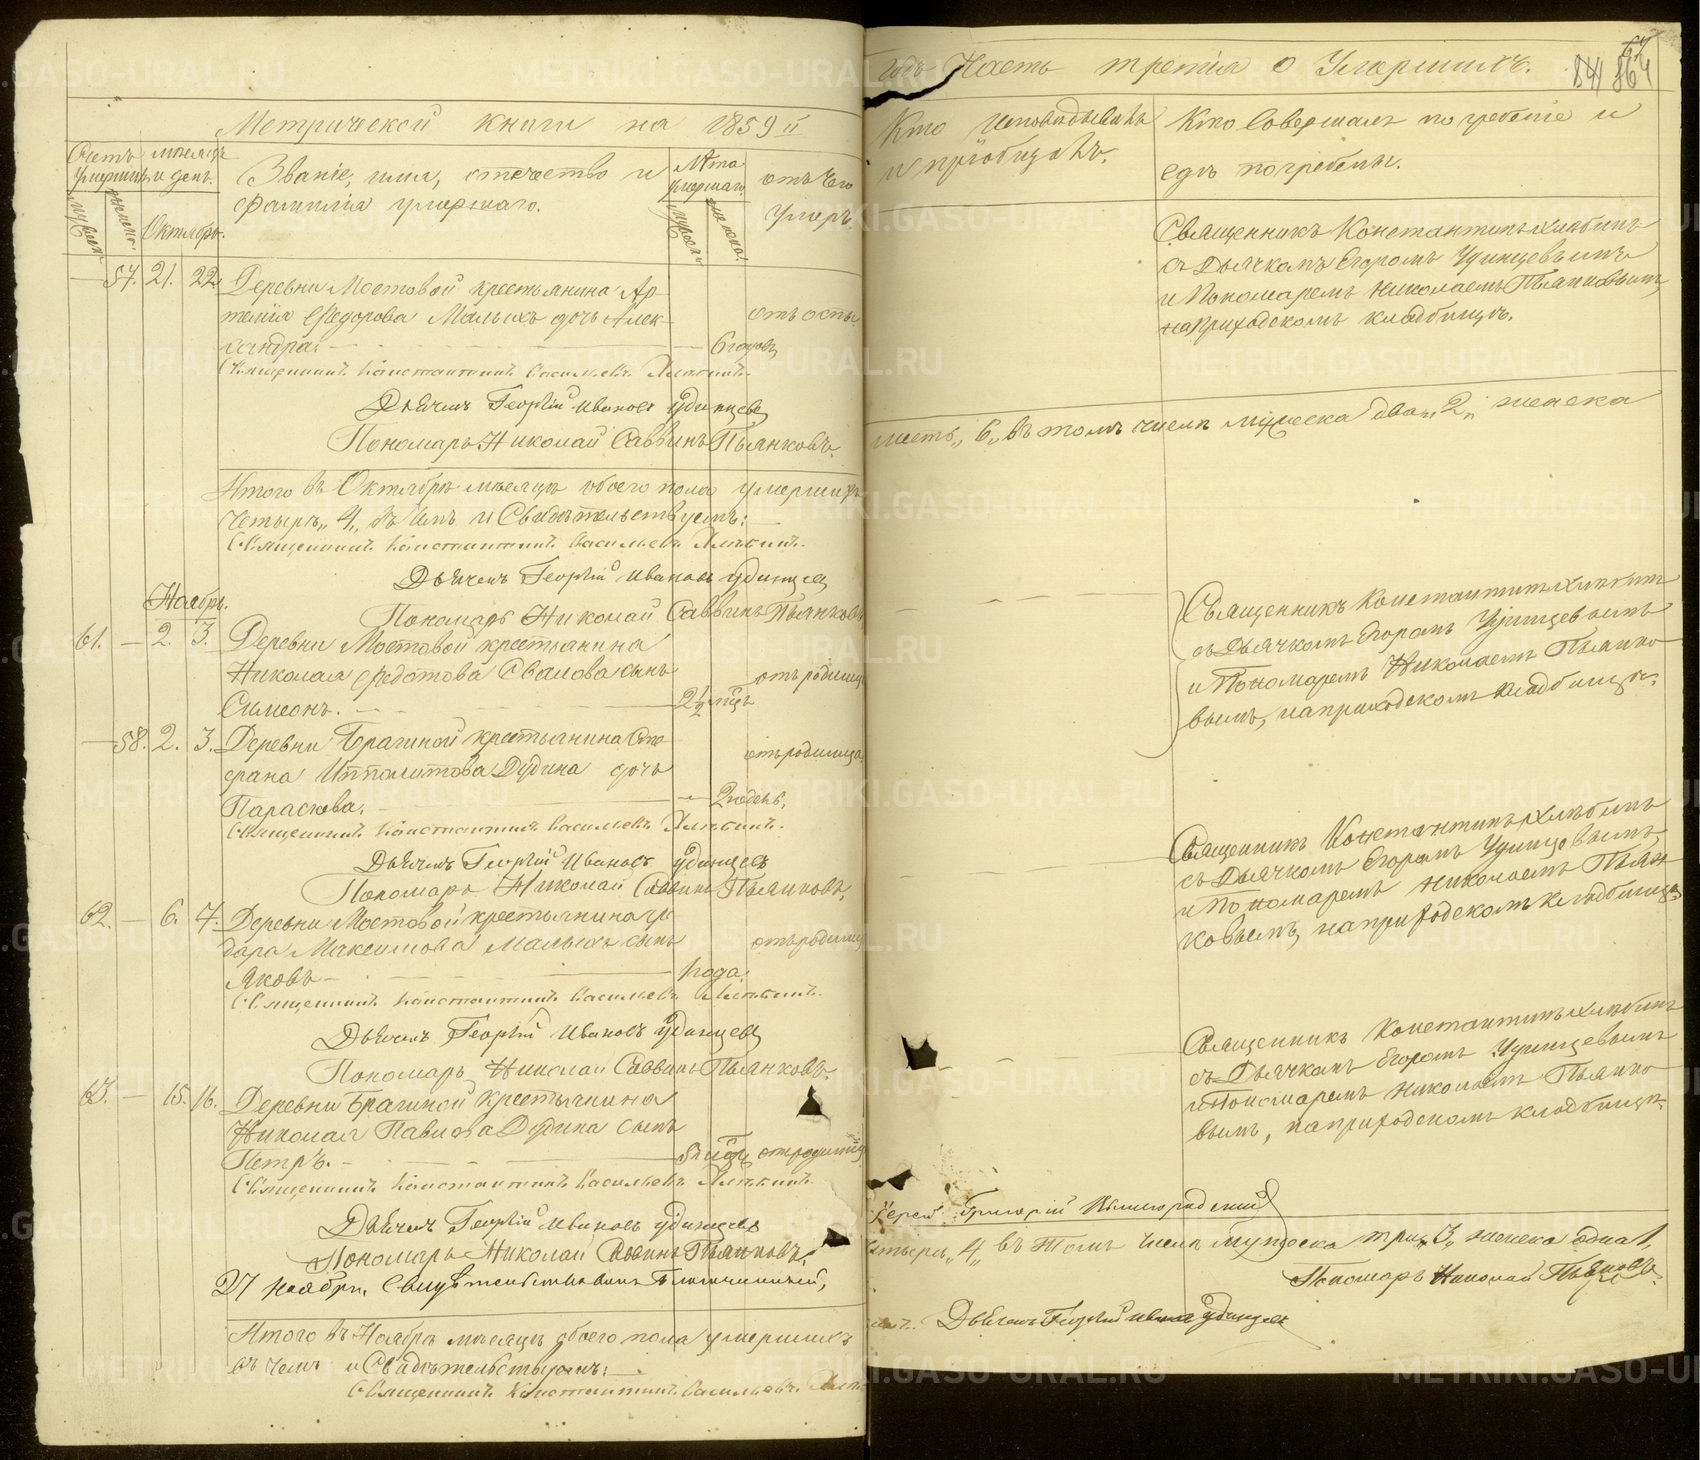 Метрической книги на 1859 й
годъ Часть третія о Умершихъ.
841 864
Счетъ умершихъ
мужеска
женска
мѣсяцъ и день.
Октябрь.
Званіе, имя, отчество и
фамилія умершаго.
Лѣта умершаго
мужеска
женска
отъ чего
умеръ.
Кто исповѣдывалъ
и пріобщалъ.
Кто совершалъ погребеніе и
гдѣ погребены.
— 57. 21. 22. Деревни Мостовой крестьянина Ар-
темія Федорова Малыхъ дочь Алек-
сандра.
6 годовъ
отъ оспы
Священникъ Константинъ Васильевъ Хлѣбинъ.
Дьячекъ Георгій Ивановъ Удинцевъ
Пономарь Николай Саввинъ Пьянковъ.
Священникъ Константинъ Хлѣбинъ
съ Дьячкомъ Егоромъ Удинцевымъ
и Пономаремъ Николаемъ Пьянковымъ,
на приходскомъ кладбищѣ.
Итого въ Октябрѣ мѣсяцѣ обоего пола умершихъ
шесть „6„ въ томъ числѣ мужеска два „2„ женска
четыре „4„ въ чемъ и Свидѣтельствуемъ:
Священникъ Константинъ Васильевъ Хлѣбинъ.
Дьячекъ Георгій Ивановъ Удинцевъ
Пономарь Николай Саввинъ Пьянковъ
Ноябрь.
61. — 2. 3. Деревни Мостовой крестьянина
Николая Федотова Свалова сынъ
Симеонъ.
2½ мѣсц
отъ родимца
Священникъ Константинъ Хлѣбинъ
съ Дьячкомъ Егоромъ Удинцевымъ
и Пономаремъ Николаемъ Пьянко-
вымъ, на приходскомъ кладбищѣ.
— 58. 2. 3. Деревни Брагиной крестьянина Сте-
фана Ипполитова Дудина дочь
Параскева.
2 недѣль.
отъ родимца
Священникъ Константинъ Васильевъ Хлѣбинъ.
Дьячекъ Георгій Ивановъ Удинцевъ
Пономарь Николай Саввинъ Пьянковъ.
Священникъ Константинъ Хлѣбинъ
съ Дьячкомъ Егоромъ Удинцовымъ,
и Пономаремъ Николаемъ Пьян-
ковымъ, на приходскомъ кладбищѣ.
62. — 6. 7. Деревни Мостовой крестьянина
Максимова Малыхъ сынъ
Яковъ
1 года.
отъ родимц
Священникъ Константинъ Васильевъ Хлѣбинъ.
Дьячекъ Георгій Ивановъ Удинцевъ
Пономарь Николай Саввинъ Пьянковъ.
Священникъ Константинъ Хлѣбинъ
съ Дьячкомъ Егоромъ Удинцевымъ
и Пономаремъ Николаемъ Пьянко-
вымъ, на приходскомъ кладбищѣ.
63. — 15. 16. Деревни Брагиной крестьянина
Николая Павлова Дудина сынъ
Петръ.
мѣсц
от родимц
Священникъ Константинъ Васильевъ Хлѣбинъ.
Дьячекъ Георгій Ивановъ Удинцевъ
Пономарь Николай Саввинъ Пьянковъ.
27 Ноября. Свидѣтельствовалъ Благочинный,
Іерей Григорій
Итого въ Ноябрѣ мѣсяцѣ обоего пола умершихъ
четыре „4„ въ томъ числѣ мужеска три „3„ женска одна 1,
въ чемъ и Свидѣтельствуемъ:
Пономарь Николай Пьянковъ.
Священникъ Константинъ Васильевъ
Дьячекъ Георгій Ивановъ Удинцевъ
METRIKI.GASO-URAL.RU